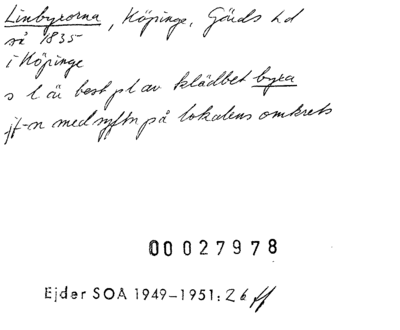 Linbyxorna, Köpinge, Gärds hd
så 1835
i Köpinge
s l är best pl av klädbet byxa
jf-n med syftn på lokalens omkrets
00027978
Ejder SOÄ 1949-1951: 26 ff